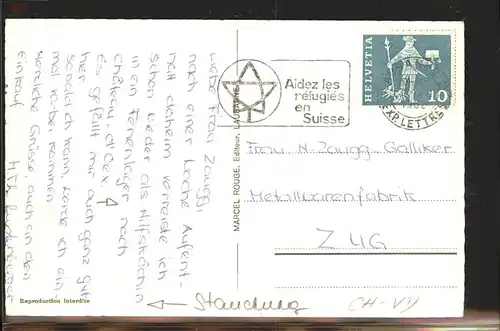 Liebe Frau Zauggi
nach einer Woche Aufent-
halt daheim verreiste ich
schon wieder als Hilfsköchin
in ein Ferienlager nach
Château-d'Oex.
es gefällt mir auch ganz gut
hier
sobald ich kann, werde ich ein
mal vorbei kommen
Herzliche Grüsse auch an den
Einkauf
MARCEL ROUGE, Editeur, LAUSANNE
Reproduction interdite
Aidez les
réfugiés
en
Suisse
EXP. LETTRES
HELVETIA
10
Frau H. Zaugg-Galliker
Metallwarenfabrik
ZUG
Stauchung
(CH-VD)